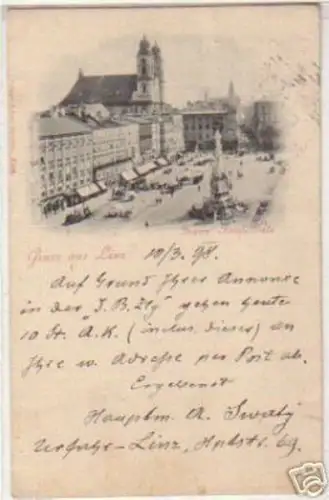 Franz Josef-Platz
Gruss aus Linz 10/3. 98.
Auf Grund Ihrer Annonce
in der "I. B. Ztg" gehen heute
10 St. A. K. (inclus. dieser) an
Ihre w. Adresse per Post ab.
Ergebenst
Hauptm. A. Swaty
Urfahr-Linz, Hptstr. 69.